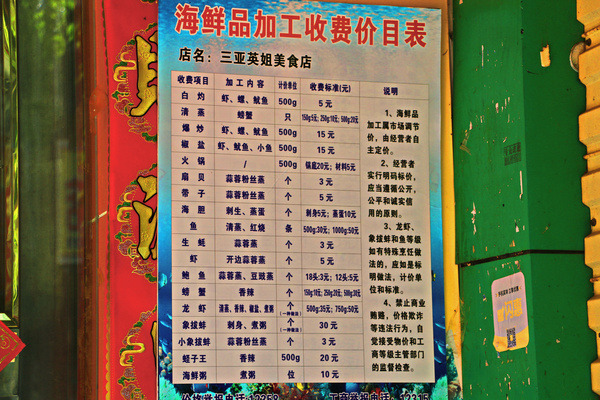 海鲜品加工收费价目表
店名：三亚英姐美食店
收费项目 加工内容 计价单位 收费标准(元) 说明
白灼 虾、螺、鱿鱼 500g 5元
清蒸 螃蟹 只 150g5元; 250g10元; 500g20元
爆炒 虾、螺、鱿鱼 500g 15元
椒盐 虾、鱿鱼、小鱼 500g 15元
火锅 / 500g 锅底20元; 材料5元
扇贝 蒜蓉粉丝蒸 个 3元
带子 蒜蓉粉丝蒸 个 5元
海胆 刺生、蒸蛋 个 刺身5元; 蒸蛋10元
鱼 清蒸、红烧 条 500g:30元; 1000g:50元
生蚝 蒜蓉蒸 个 3元
虾 开边蒜蓉蒸 个 5元
鲍鱼 蒜蓉蒸、豆豉蒸 个 18头:3元; 12头:5元
螃蟹 香辣 个 150g10元; 250g20元; 500g30元
龙虾 清蒸、香辣、椒盐、煮粥 个(一种做法) 500g:35元; 750g:50元
象拔蚌 刺身、煮粥 个(一种做法) 30元
小象拔蚌 蒜蓉粉丝蒸 个 3元
蛏子王 香辣 500g 20元
海鲜粥 煮粥 位 10元
1、海鲜品
加工属市场调节
价，由经营者自
主定价。
2、经营者
实行明码标价，
应当遵循公开，
公平和诚实信
用的原则。
3、龙虾、
象拔蚌和鱼等级
如有特殊烹饪做
法的，应如是标
明做法，计价单
位和标准。
4、禁止商业
贿赂，价格欺诈
等违法行为，自
觉接受物价和工
商等级主管部门
的监督检查。
价格举报电话:12358 工商举报电话：12315